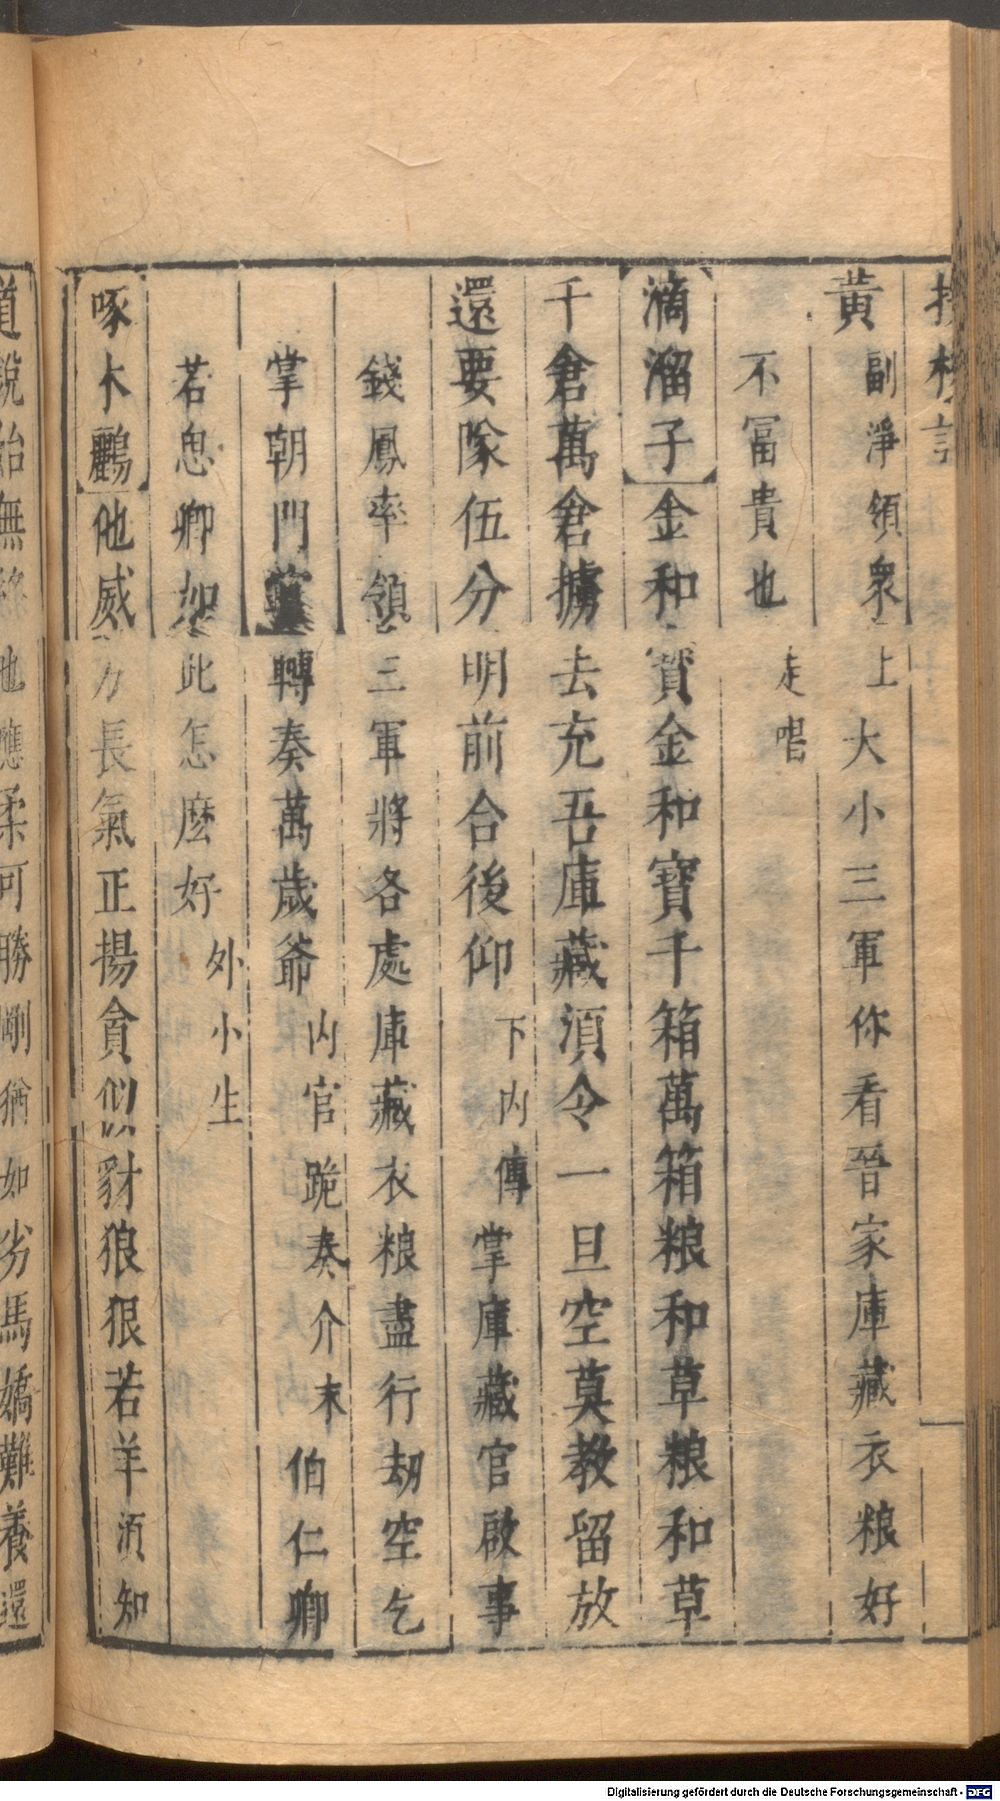 投梭記
黃 副淨領衆上大小三軍你看晉家庫藏衣粮好
不冨貴也走唱
滴溜子金和寳金和寳千箱萬箱粮和草粮和草
千倉萬倉擄去充吾庫藏湏令一旦空莫教留放
還要隊伍分明前合後仰下内傳掌庫藏官啟事
錢鳳率領三軍將各處庫藏衣粮盡行劫空乞
掌朝門轉奏萬歲爺内官跪奏介末伯仁卿
若思卿如此怎麽好外小生
啄木鸝他威力長氣正揚貪似豺狼狠若羊湏知
道說 無 他應柔可勝剛猶如劣馬嬌難養還
Digitalisierung gefördert durch die Deutsche Forschungsgemeinschaft - DFG